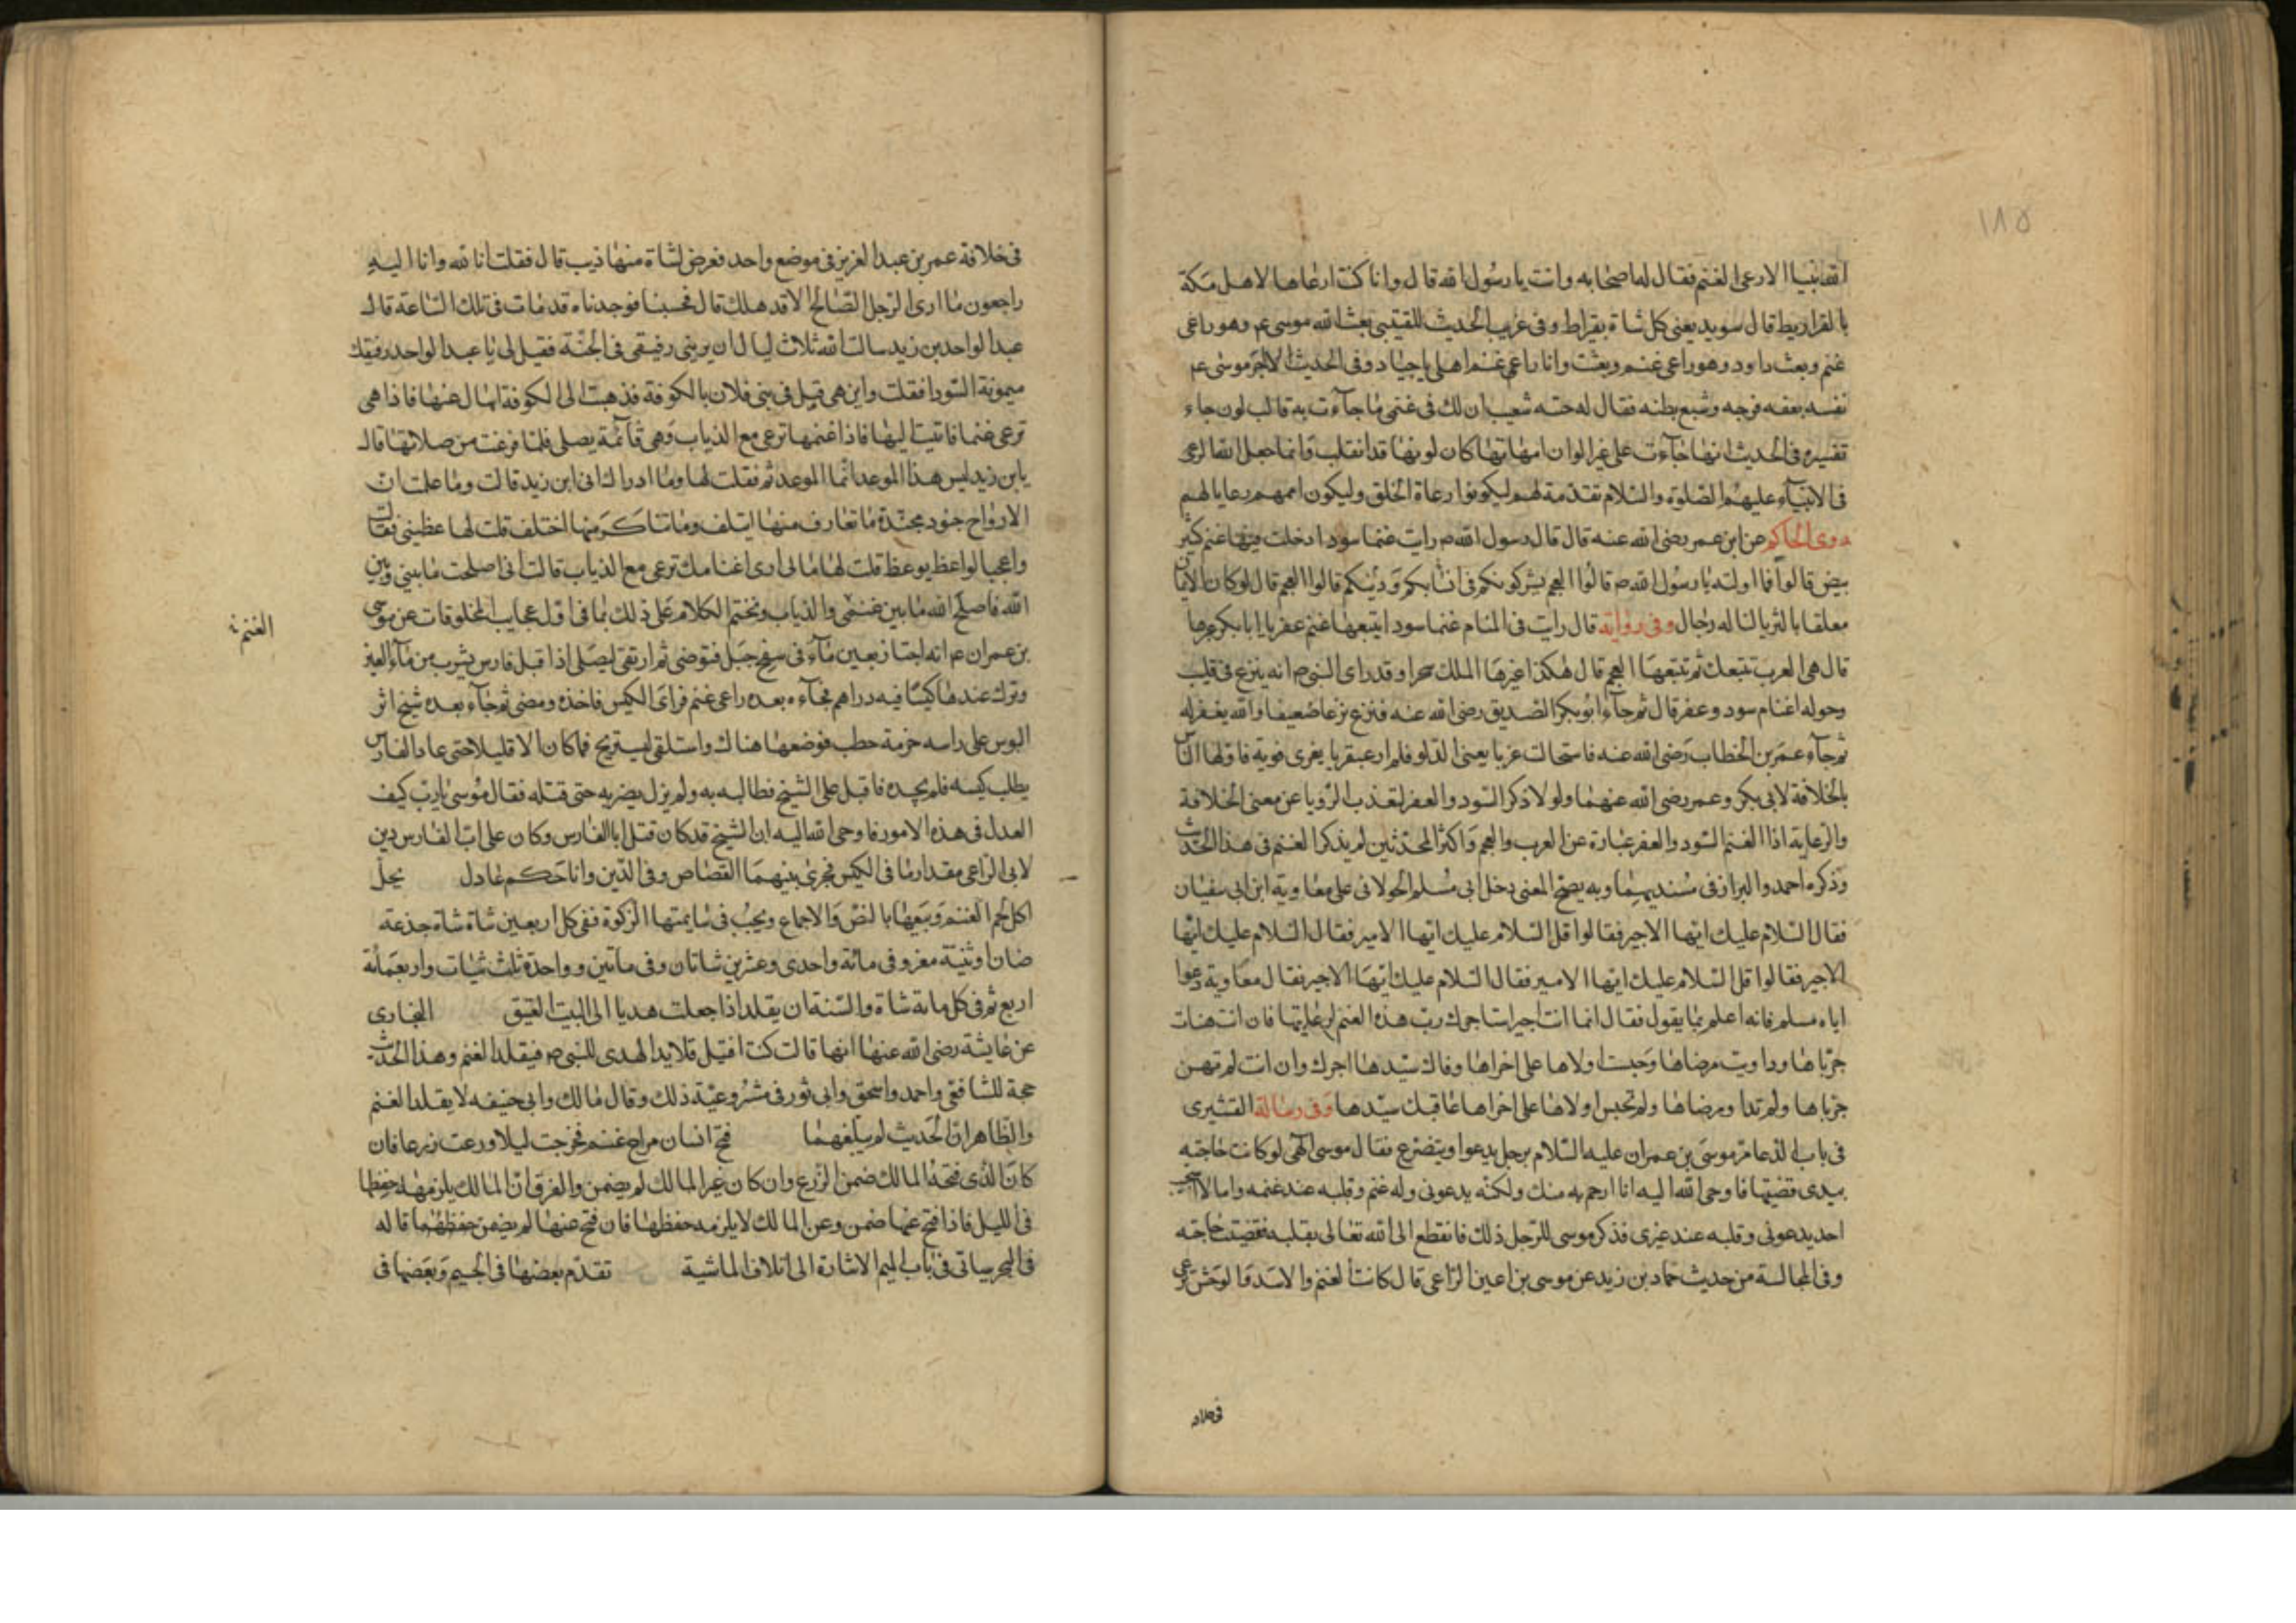 ١١٥
الله نبيا الا رعى الغنم فقال له اصحابه وانت يا رسول الله قال وانا كنت ارعاها لاهل مكة
بالقراريط قال سويد يعنى كل شاة بقيراط وفى غريب الحديث للقتيبى بعث الله موسى عم وهو راعى
غنم وبعث داود وهو راعى غنم وبعثت وانا راعى غنم اهلى باجياد وفى الحديث الاجر موسى عم
نفسه بعفه فرجه وشبع بطنه فقال له ختنه شعيب ان لك فى غنمى ما جآءت به قالب لون جاء
تفسيره فى الحديث انها جآءت على غير الوان امهاتها كان لونها قد انقلب وانما جعل الله الرعى
فى الانبيآء عليهم الصلوة والسلام تقدمة لهم ليكونوا رعاة الخلق وليكون اممهم رعايا لهم
روى الحاكم عن ابن عمر رضى الله عنه قال قال رسول الله ص رايت غنما سودا دخلت فيها غنم كثير
بيض قالوا فما اولته يا رسول الله ص قالوا العجم يشركونكم فى انسابكم ودينكم قالوا العجم قال لو كان الايمان
معلقا بالثريا لناله رجال وفى رواية قال رايت فى المنام غنما سودا يتبعها غنم عفر يا ابا بكر عبرها
قال هى العرب تتبعك ثم تتبعها العجم قال هكذا عبرها الملك سحرا وقد راى النبى ص انه ينزع فى قليب
وحوله اغنام سود وعفر قال ثم جآء ابو بكر الصديق رضى الله عنه فنزع نزعا ضعيفا والله يغفر له
ثم جآء عمر بن الخطاب رضى الله عنه فاستحالت غربا يعنى الدلو فلم ار عبقريا يفرى فريه فاولها الناس
بالخلافة لابى بكر وعمر رضى الله عنهما ولولا ذكر السود والعفر لبعدت الرؤيا عن معنى الخلافة
والرعاية اذا الغنم السود والعفر عبارة عن العرب والعجم واكثر المحدثين لم يذكر الغنم فى هذا الحديث
وذكره احمد والبزار فى مسنديهما وبه يصح المعنى دخل ابى مسلم الخولانى على معاوية ابن ابى سفيان
فقال السلام عليك ايها الاجير فقالوا قل السلام عليك ايها الامير فقال السلام عليك ايها
الاجير فقالوا قل السلام عليك ايها الامير فقال السلام عليك ايها الاجير فقال معاوية دعوا
اباه مسلم فانه اعلم بما يقول فقال انما انت اجير استاجرك رب هذه الغنم لرعايتها فان انت هنات
جرباها وداويت مرضاها وحبست اولاها على اخراها وفاك سيدها اجرك وان انت لم تهن
جرباها ولم تداو مرضاها ولم تحبس اولاها على اخراها عاقبك سيدها وفى رسالة القشيرى
فى باب الدعا مر موسى بن عمران عليه السلام برجل يدعوا ويتضرع فقال موسى الهى لو كانت حاجته
بيدى قضيتها فاوحى الله اليه انا ارحم به منك ولكنه يدعونى وله غنم وقلبه عند غنمه وانا لا استجيب
احد يدعونى وقلبه عند غيرى فذكر موسى للرجل ذلك فانقطع الى الله تعالى بقلبه فقضيت حاجته
وفى المجالسة من حديث حماد بن زيد عن موسى بن اعين الراعى قال كانت الغنم والاسد والوحش ترعى
فى خلاف
فى خلافة عمر بن عبد العزيز فى موضع واحد فعرض لشاة منها ذيب قال فقلت انا لله وانا اليه
راجعون ما ارى الرجل الصالح الا قد هلك قال فحسبنا فوجدناه قد مات فى تلك الساعة قال
عبد الواحد بن زيد سالت الله ثلاث ليال ان يرينى رفيقى فى الجنة فقيل لى يا عبد الواحد رفيقك
ميمونة السودا فقلت واين هى قيل فى بنى فلان بالكوفة فذهبت الى الكوفة اسال عنها فاذا هى
ترعى غنما فاتيت اليها فاذا غنمها ترعى مع الذياب وهى قآئمة يصلى فلما فرغت من صلاتها قال
يابن زيد ليس هذا الموعد انما الموعد ثم فقلت لها وما ادراك انى ابن زيد قالت وما علمت ان
الارواح جنود مجندة ما تعارف منها ايتلف وما تناكر منها اختلف قلت لها عظينى فقالت
واعجبا لواعظ يوعظ قلت لها ما لى ارى اغنامك ترعى مع الذياب قالت انى اصلحت ما بينى وبين
الله فاصلح الله ما بين غنمى والذياب ونختم الكلام على ذلك بما فى اول عجايب المخلوقات عن موسى
الغنم
بن عمران عم انه اجتاز بعين مآء فى سفح جبل فتوضى ثم ارتقى ليصلى اذ اقبل فارس يشرب من مآء العين
وترك عندها كيسا فيه دراهم فجآءه بعده راعى غنم فراى الكيس فاخذه ومضى ثم جآء بعده شيخ اثر
البوس على راسه حزمة حطب فوضعها هناك واستلقى ليستريح فما كان الا قليلا حتى عاد الفارس
يطلب كيسه فلم يجده فاقبل على الشيخ فطالبه به ولم يزل يضربه حتى قتله فقال موسى يا رب كيف
العدل فى هذه الامور فاوحى الله اليه ان الشيخ قد كان قتل ابا الفارس وكان على اب الفارس دين
لابى الراعى مقدار ما فى الكيس فجرى بينهما القصاص وفى الدين وانا حكم عادل يحل
اكل لحم الغنم وبيعها بالنص والاجماع ويجب فى سايمتها الزكوة ففى كل اربعين شاة شاة جذعة
ضان او ثنية معز وفى مائة واحدى وعشرين شاتان وفى ماتين وواحدة ثلث شياه واربعمائة
اربع ثم فى كل مائة شاة والسنة ان يقلد اذا جعلت هديا الى البيت العتيق البخارى
عن عايشة رضى الله عنها انها قالت كنت افتل قلايد الهدى للنبى ص فيقلد الغنم وهذا الحديث
حجة للشافعى واحمد واسحق وابى ثور فى مشروعية ذلك وقال مالك وابى حنيفه لا يقلد الغنم
والظاهر ان الحديث لم يبلغهما فتح انسان مراح غنم فخرجت ليلا ورعت زرعا فان
كان الذى فتحه المالك ضمن الزرع وان كان غير المالك لم يضمن والفرق ان المالك يلزمه حفظها
فى الليل فاذا فتح عنها ضمن وعن المالك لا يلزمه حفظها فان فتح عنها لم يضمن حفظهما قاله
فى البحر سياتى فى باب الميم الاشارة الى اتلاف الماشية تقدم بعضها فى الجيم وبعضها فى